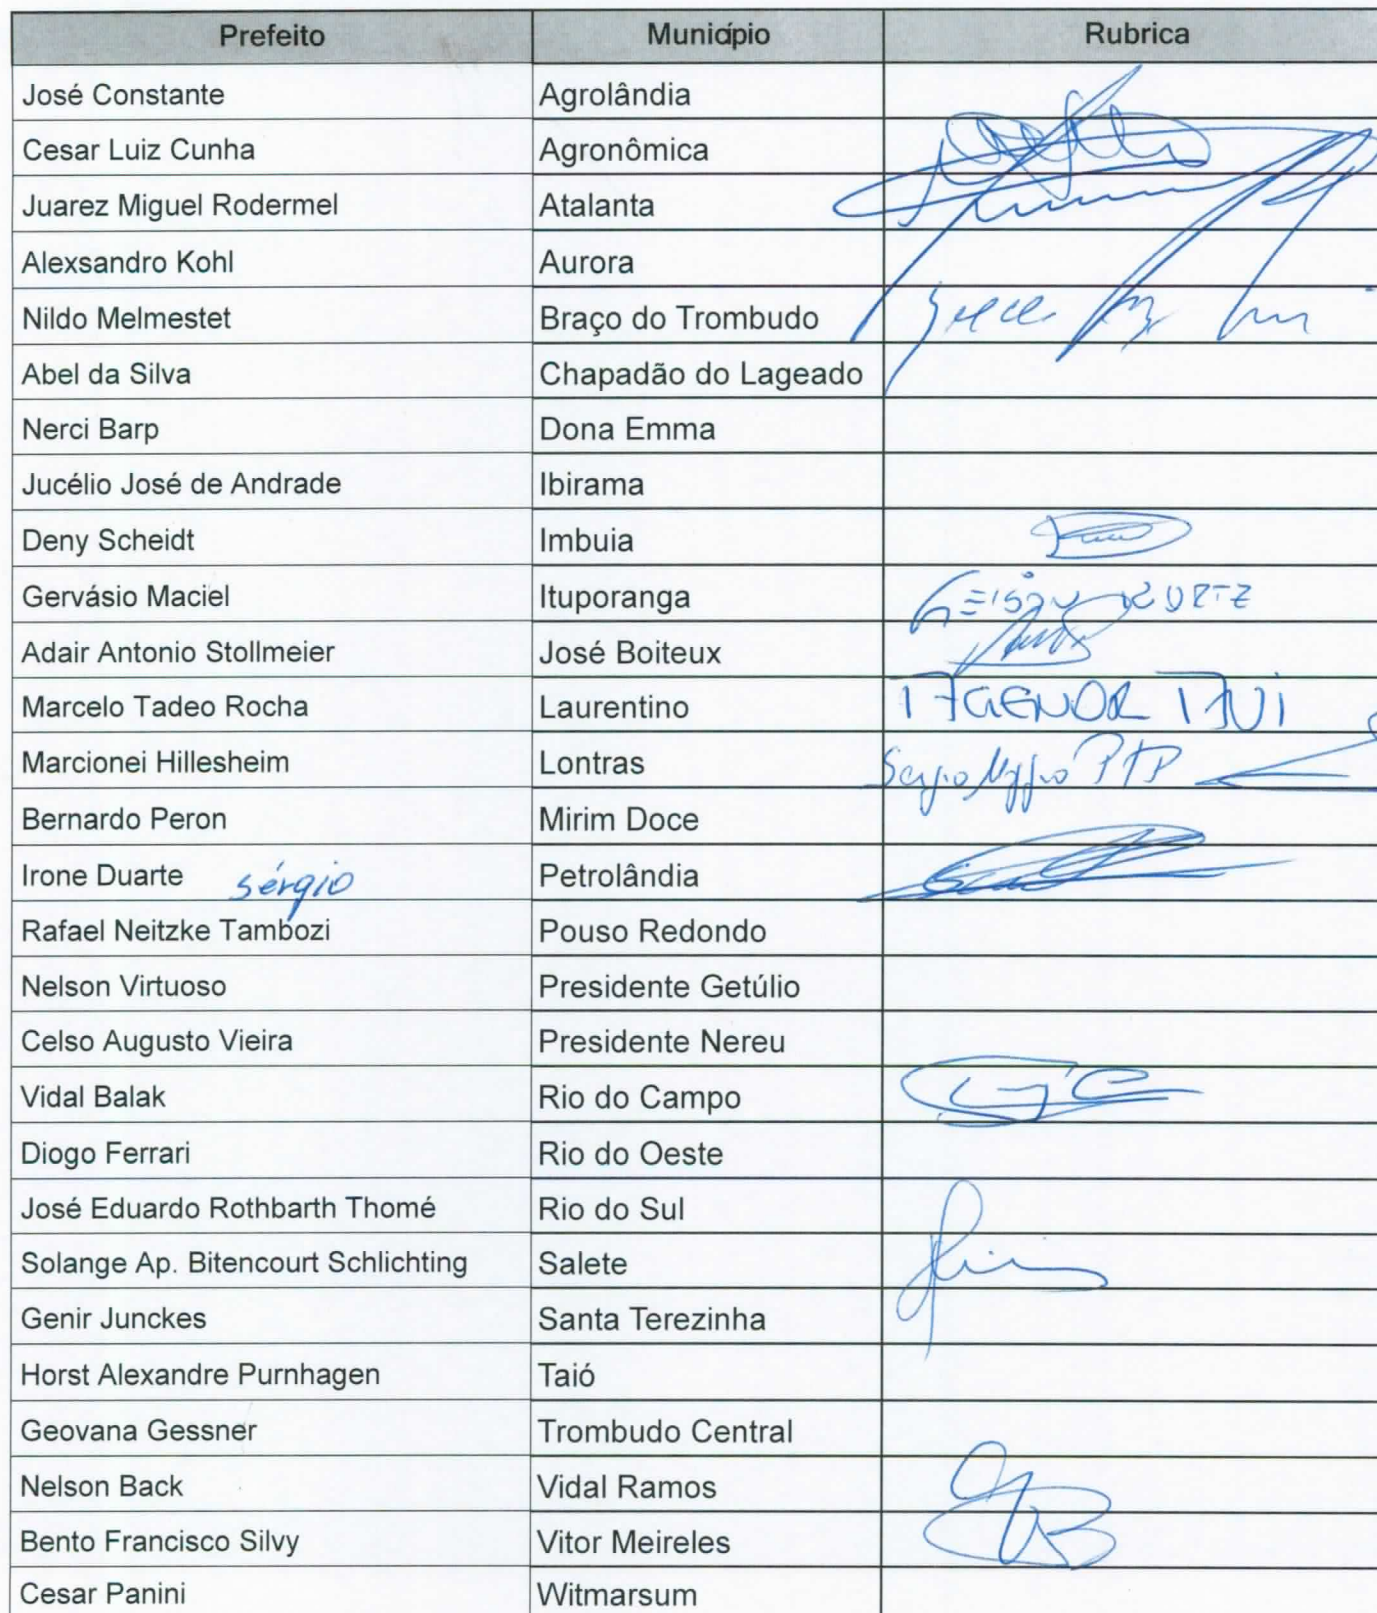 Prefeito Município Rubrica
José Constante Agrolândia
Cesar Luiz Cunha Agronômica
Juarez Miguel Rodermel Atalanta
Alexsandro Kohl Aurora
Nildo Melmestet Braço do Trombudo
Abel da Silva Chapadão do Lageado
Nerci Barp Dona Emma
Jucélio José de Andrade Ibirama
Deny Scheidt Imbuia
Gervásio Maciel Ituporanga
Adair Antonio Stollmeier José Boiteux
Marcelo Tadeo Rocha Laurentino
Marcionei Hillesheim Lontras
Bernardo Peron Mirim Doce
Irone Duarte sérgio Petrolândia
Rafael Neitzke Tambozi Pouso Redondo
Nelson Virtuoso Presidente Getúlio
Celso Augusto Vieira Presidente Nereu
Vidal Balak Rio do Campo
Diogo Ferrari Rio do Oeste
José Eduardo Rothbarth Thomé Rio do Sul
Solange Ap. Bitencourt Schlichting Salete
Genir Junckes Santa Terezinha
Horst Alexandre Purnhagen Taió
Geovana Gessner Trombudo Central
Nelson Back Vidal Ramos
Bento Francisco Silvy Vitor Meireles
Cesar Panini Witmarsum